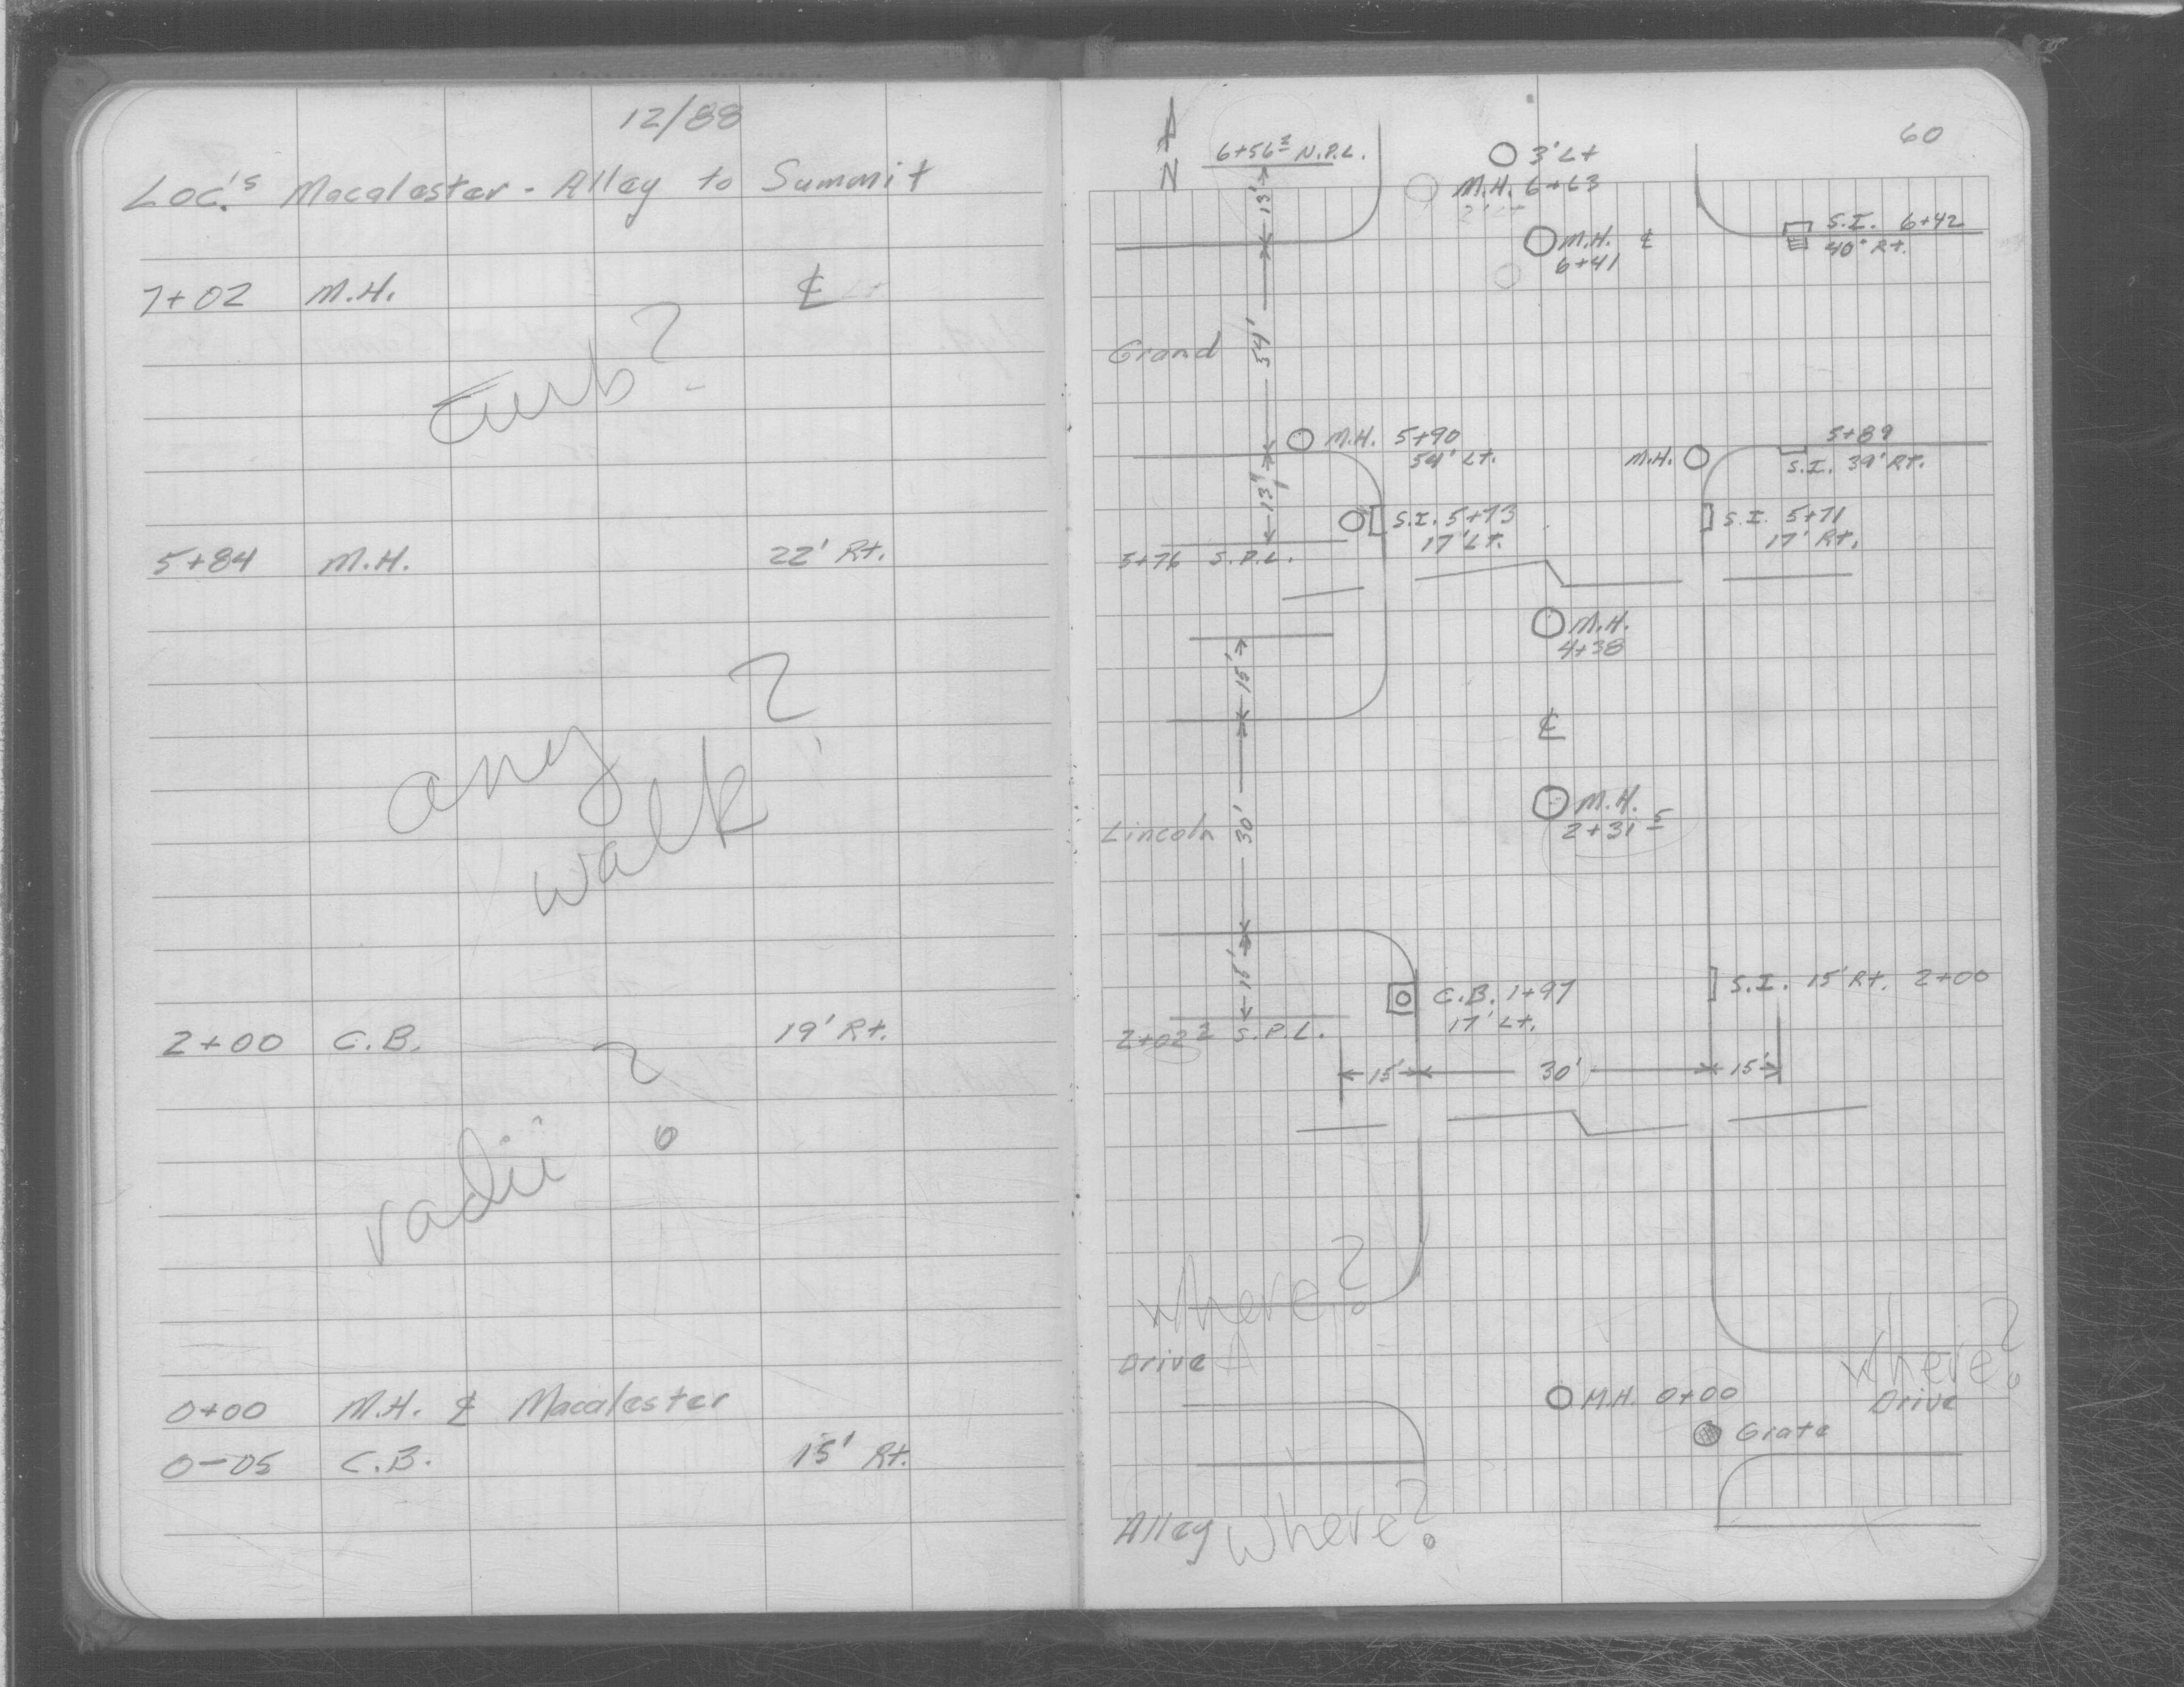 12/88
Loc.'s Macalester - Alley to Summit
7+02 M.H. ℄
Curb?
5+84 M.H. 22' Rt.
any
walk?
2+00 C.B. 19' Rt.
radii ?
0+00 M.H. ℄ Macalester
0-05 C.B. 15' Rt.
60
N
6+56² N.P.L.
3' Lt
M.H. 6+63
2' Lt
13'
M.H. ℄
6+41
S.I. 6+42
40' Rt.
Grand
54'
M.H. 5+90
54' Lt.
M.H.
5+89
S.I. 39' Rt.
13'
S.I. 5+73
17' Lt.
S.I. 5+71
17' Rt.
5+76 S.P.L.
M.H.
4+38
15'
℄
M.H.
2+31⁵
Lincoln
30'
15'
C.B. 1+97
17' Lt.
S.I. 15' Rt. 2+00
2+02² S.P.L.
15' 30' 15'
where?
Drive
where?
M.H. 0+00
Drive
Grate
Alley where?